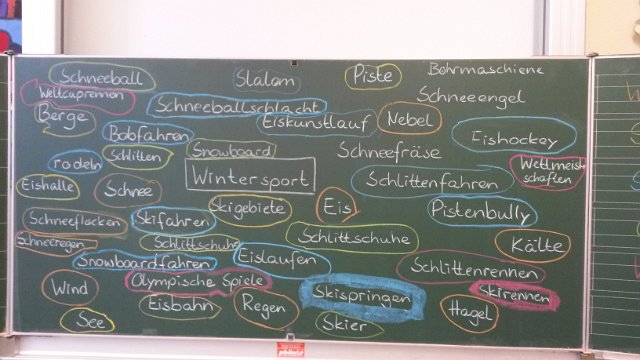 Schneeball
Slalom
Piste
Bohrmaschiene
Weltcuprennen
Schneeballschlacht
Schneeengel
Berge
Eiskunstlauf
Nebel
Bobfahren
Eishockey
Schlitten
Snowboard
Schneefräse
rodeln
Wettmeist-
schaften
Wintersport
Schlittenfahren
Eishalle
Schnee
Skigebiete
Eis
Pistenbully
Schneeflocken
Skifahren
Schlittschuhe
Schlittschuhe
Kälte
Schneeregen
Snowboardfahren
Eislaufen
Schlittenrennen
Olympische Spiele
Wind
Skispringen
Skirennen
Eisbahn
Regen
Hagel
See
Skier